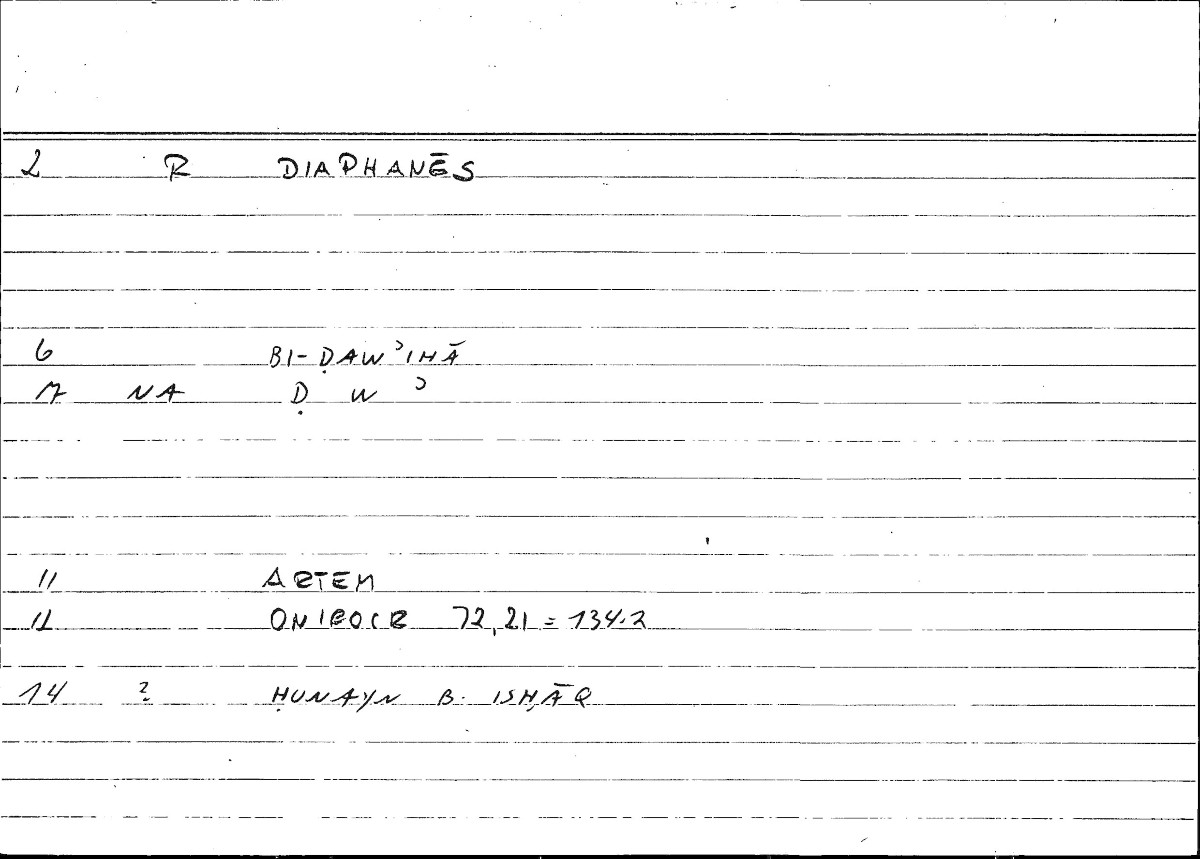 2 R DIAPHANĒS
6 BI-ḌAWʾIHĀ
7 NA Ḍ W ʾ
11 ARTEM
12 ONIROCR 72,21 = 134.2
14 ? ḤUNAYN B. ISḤĀQ